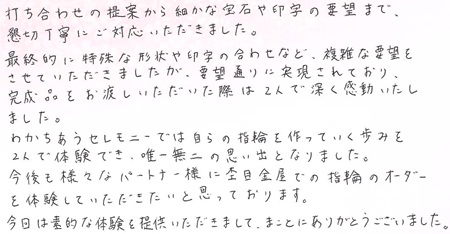 打ち合わせの提案から細かな宝石や印字の要望まで、
懇切丁寧にご対応いただきました。
最終的に特殊な形状や印字の合わせなど、複雑な要望を
させていただきましたが、要望通りに実現されており、
完成品をお渡しいただいた際は2人で深く感動いたし
ました。
わかちあうセレモニーでは自らの指輪を作っていく歩みを
2人で体験でき、唯一無二の思い出となりました。
今後も様々なパートナー様に杢目金屋での指輪のオーダー
を体験していただきたいと思っております。
今日は素的な体験を提供いただきまして、まことにありがとうございました。